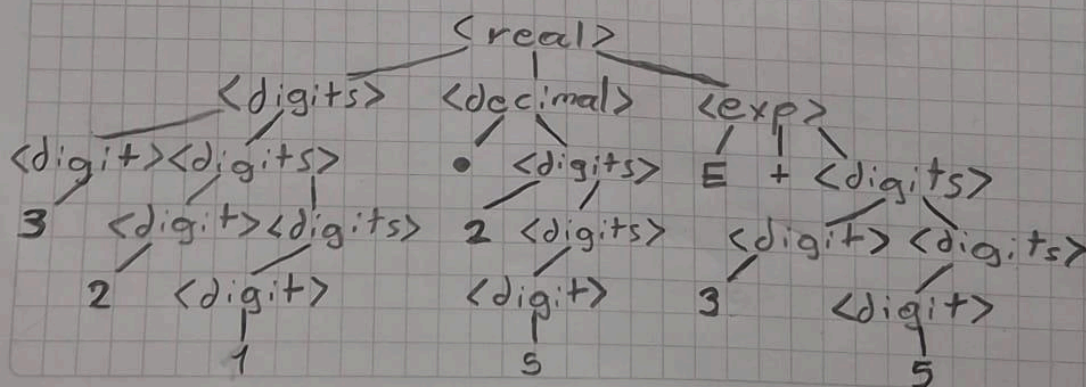 <real>
<digits> <decimal> <exp>
<digit> <digits> • <digits> E + <digits>
3 <digit> <digits> 2 <digits> <digit> <digits>
2 <digit> <digit> 3 <digit>
1 5 5